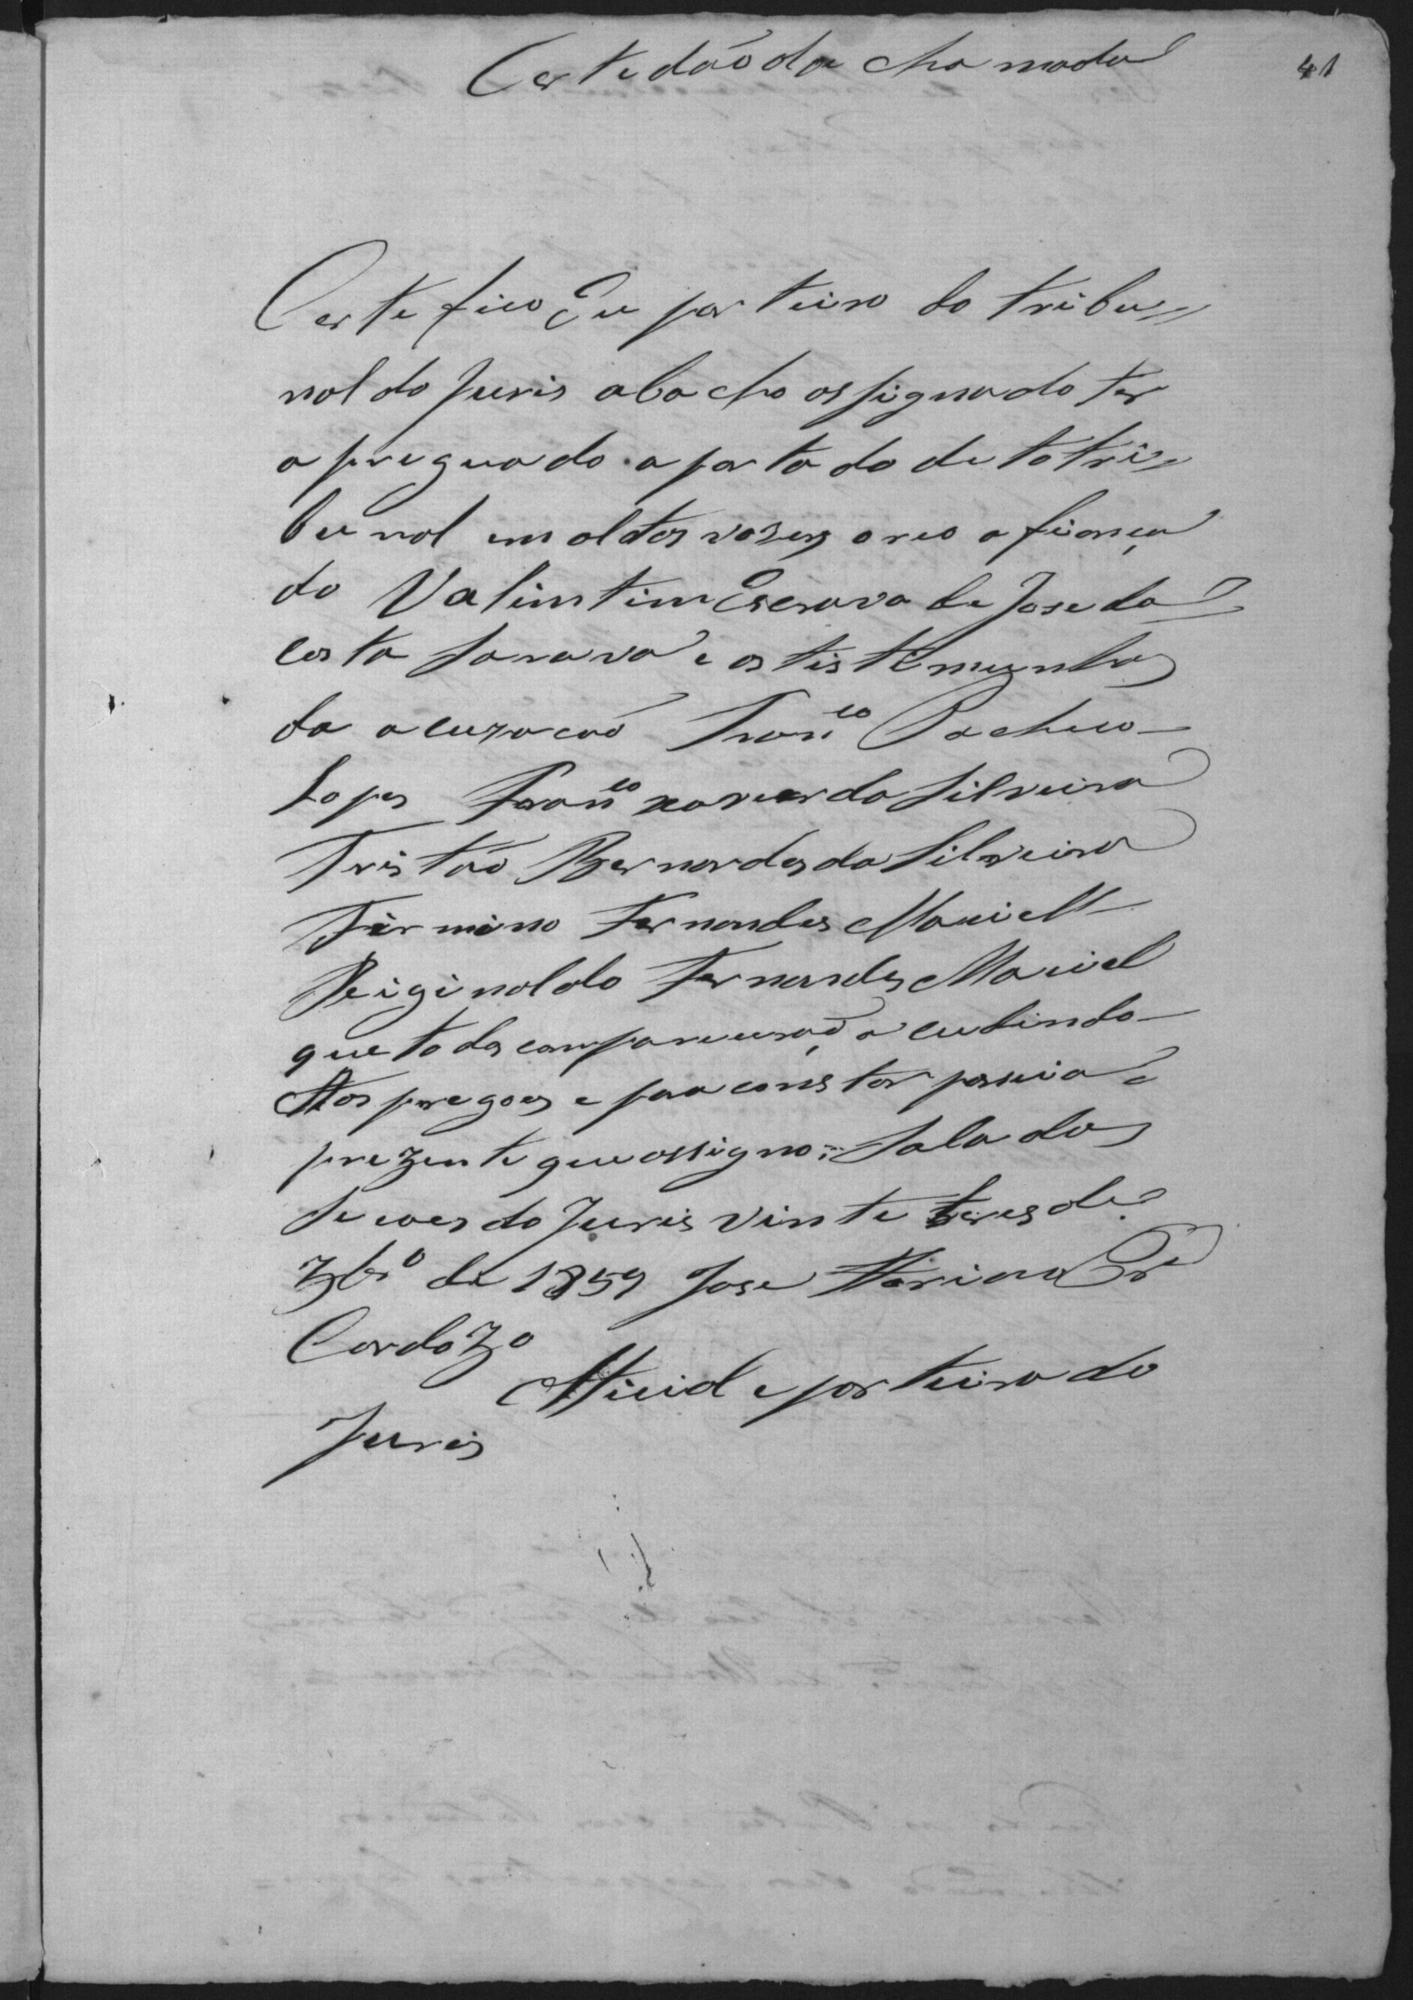 Certedaõ da chamada
41
Certefico Eu porteiro do tribu//
nal do Juris abacho assignado ter
apreguado a porta do dito tri//
bunal em altas vozes o reo afiança
do Valintim Escravo de Jose da
Costa Sarava e as tistemunhas
da acuzacaõ Fran.co Pacheco
Lopes Fran.co xavier da Silveira
Tristaõ Bernardes da Silveira
Firmino Fernandes Maciel
Reiginaldo Fernandes Maciel
que todos compareceraõ acudindo
Aos pregoes e para constar pasei a
prezente que assigno. Sala das
Secoes do Juris vinte tres de
de 1859 Jose
Cardozo
Oficial e porteiro do
Juris